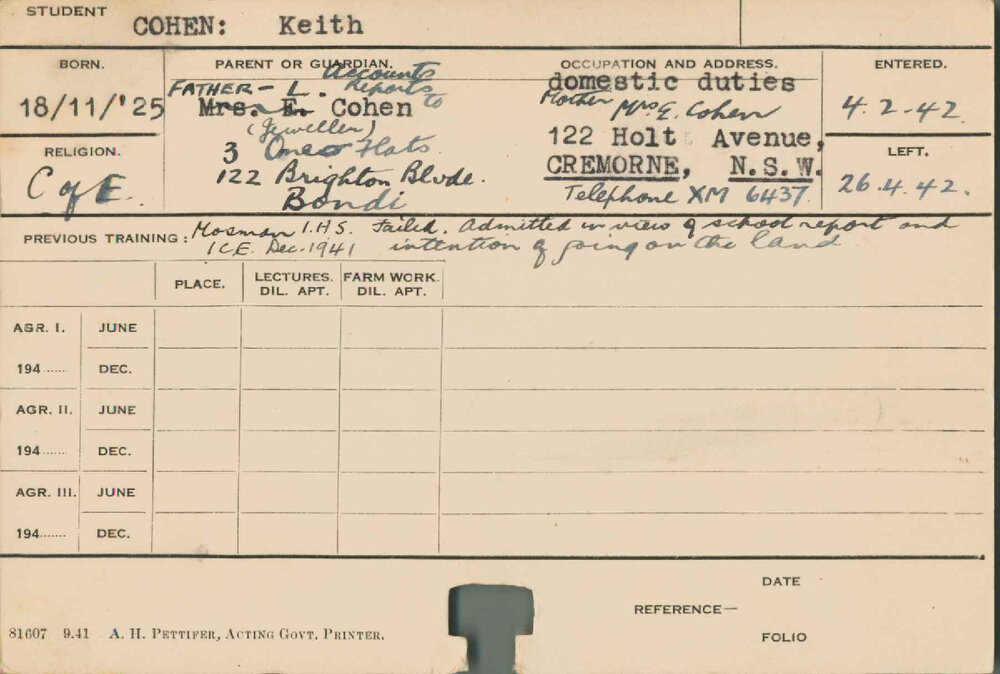 STUDENT COHEN: Keith
BORN. PARENT OR GUARDIAN. OCCUPATION AND ADDRESS. ENTERED.
18/11/'25
Accounts
FATHER - L. Reports to
Mrs. E. Cohen
(Jeweller)
3 Flats
122 Brighton Blvde.
Bondi
domestic duties
Mother Mrs E. Cohen
122 Holt Avenue,
CREMORNE, N.S.W.
Telephone XM 6437
4.2.42
RELIGION.
C of E.
LEFT.
26.4.42.
PREVIOUS TRAINING: Mosman I.H.S. Failed. Admitted in view of school report and
I.C.E. Dec. 1941 intention of going on the land
PLACE. LECTURES. FARM WORK.
DIL. APT. DIL. APT.
AGR. I. JUNE
194...... DEC.
AGR. II. JUNE
194...... DEC.
AGR. III. JUNE
194....... DEC.
DATE
REFERENCE—
FOLIO
81607 9.41 A. H. PETTIFER, ACTING GOVT. PRINTER.